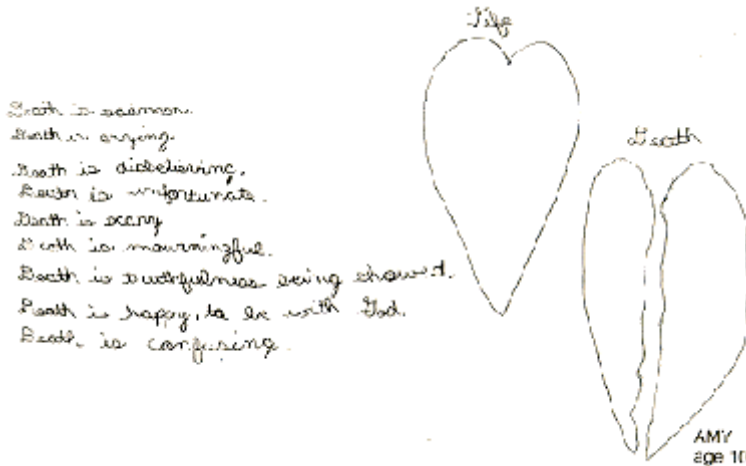 Life
Death is
Death is crying.
Death is disbelieving.
Death is unfortunate.
Death is scary
Death is mourningful.
Death is truthfulness being showed.
Death is happy, to be with God.
Death is confusing.
Death
AMY
age 10